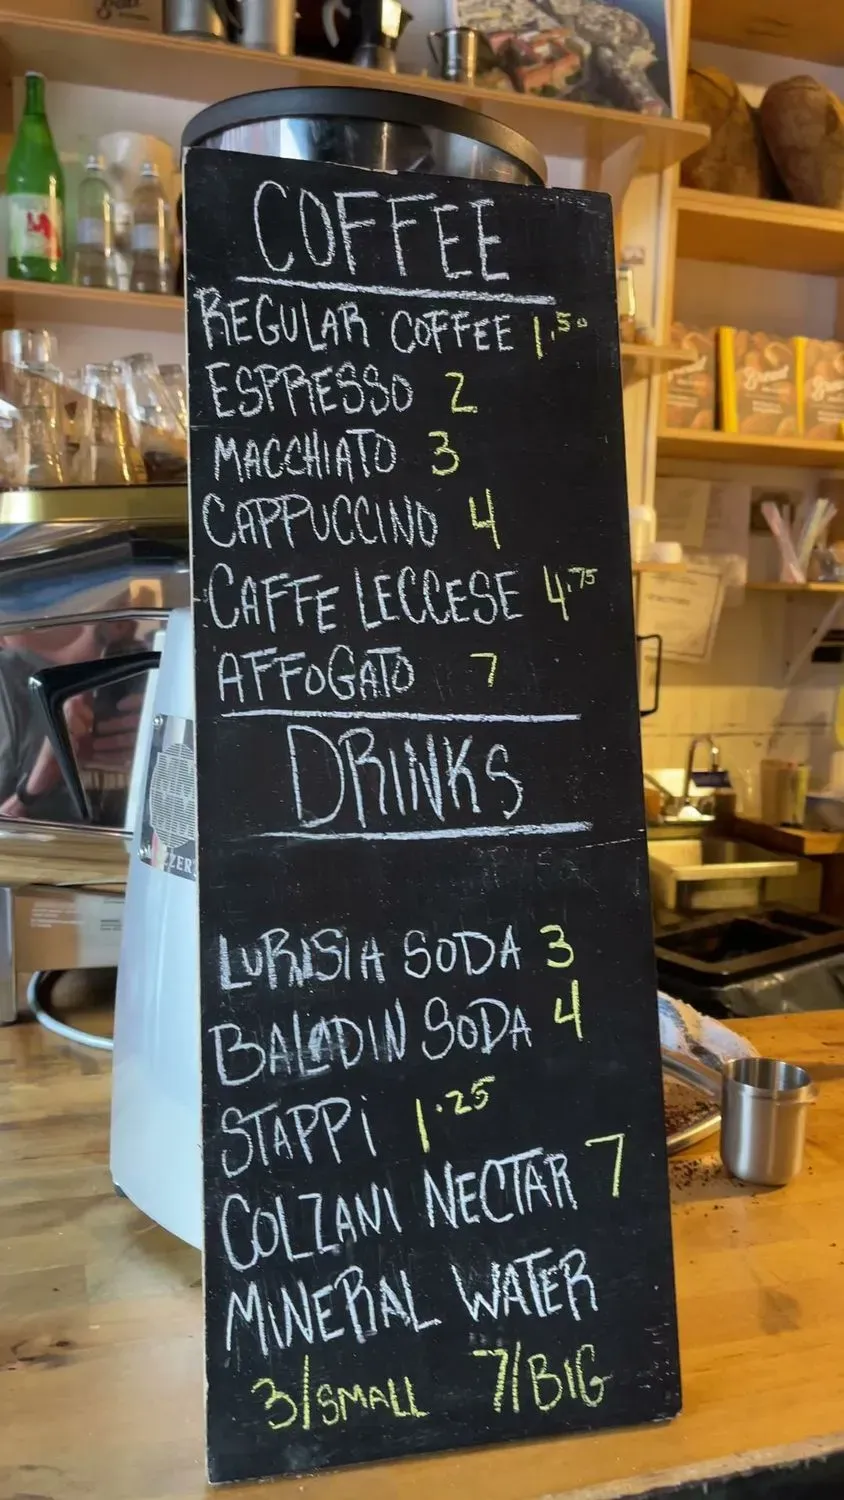 COFFEE
REGULAR COFFEE 1.50
ESPRESSO 2
MACCHIATO 3
CAPPUCCINO 4
CAFFE LECCESE 4.75
AFFOGATO 7
DRINKS
LURISIA SODA 3
BALADIN SODA 4
STAPPi 1.25
COLZANI NECTAR 7
MINERAL WATER
3/SMALL 7/BIG